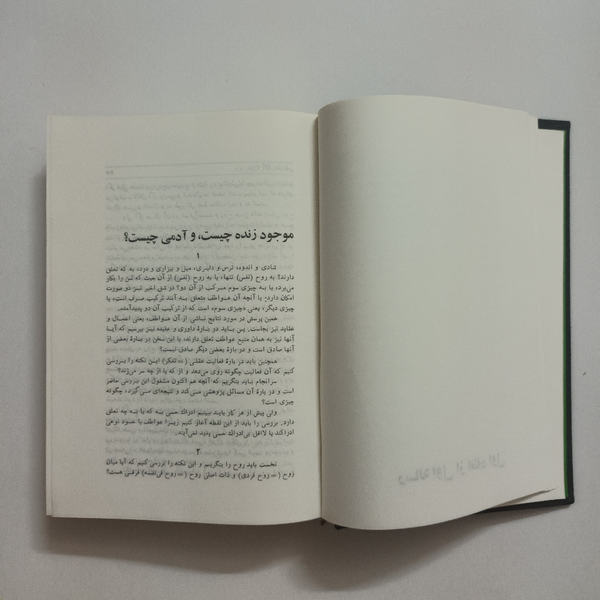 موجود زنده چیست، و آدمی چیست؟
۱
شادی و اندوه، ترس و دلیری، میل و بیزاری و درد، به که تعلق
دارند؟ به روح (نفس) تنها، یا به روح (نفس) از آن حیث که تن را بکار
می‌برد، یا به چیزی سوم مرکب از آن دو؟ در شق اخیر نیز دو صورت
امکان دارد: یا آنچه آن عواطف متعلق به آنند ترکیب صرف است، یا
چیزی دیگر، یعنی «چیزی سوم» است که از ترکیب آن دو پدید آمده.
همین پرسش در مورد نتایج ناشی از آن عواطف، یعنی اعمال و
عقاید نیز بجاست. پس باید در بارهٔ داوری و عقیده نیز بپرسیم که آیا
آنها نیز به همان منبع عواطف تعلق دارند، یا این سخن در بارهٔ بعضی از
آنها صادق است و در بارهٔ بعضی دیگر صادق نیست؟
همچنین باید در بارهٔ فعالیت عقلی (= تفکر) این نکته را بررسی
کنیم که آن فعالیت چگونه روی می‌دهد و از که یا از چه سر می‌زند؟
سرانجام باید بنگریم که آنچه هم اکنون مشغول این بررسی حاضر
است و در بارهٔ آن مسائل پژوهش می‌کند و نتیجه‌ای می‌گیرد، چگونه
چیزی است؟
ولی پیش از هر کار باید ببینیم ادراک حسی به که یا به چه تعلق
دارد. بررسی را باید از این نقطه آغاز کنیم زیرا عواطف یا خود نوعی
ادراکند یا لااقل بی‌ادراک حسی پدید نمی‌آیند.
۲
نخست باید روح را بنگریم و این نکته را بررسی کنیم که آیا میان
روح (= روح فردی) و ذات اصلی روح (= روح فی‌نفسه) فرقی هست؟